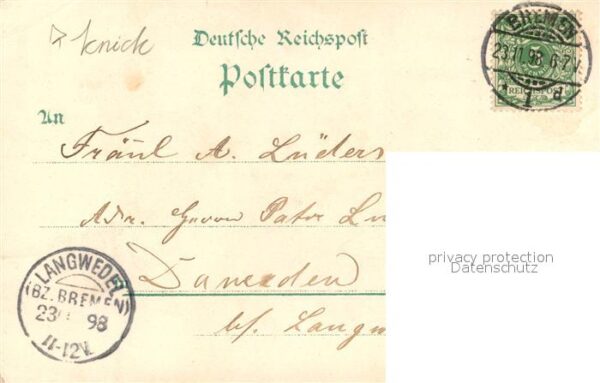 knick
Deutsche Reichspost
Postkarte
An
Fräul A. Lüders
Adr. Herrn Pator Lü
Daverden
bf. Langw
BREMEN
23.11.98 6-7V
1 d
5
REICHSPOST
LANGWEDEL
(BZ. BREMEN)
23 98
11-12V.
privacy protection
Datenschutz